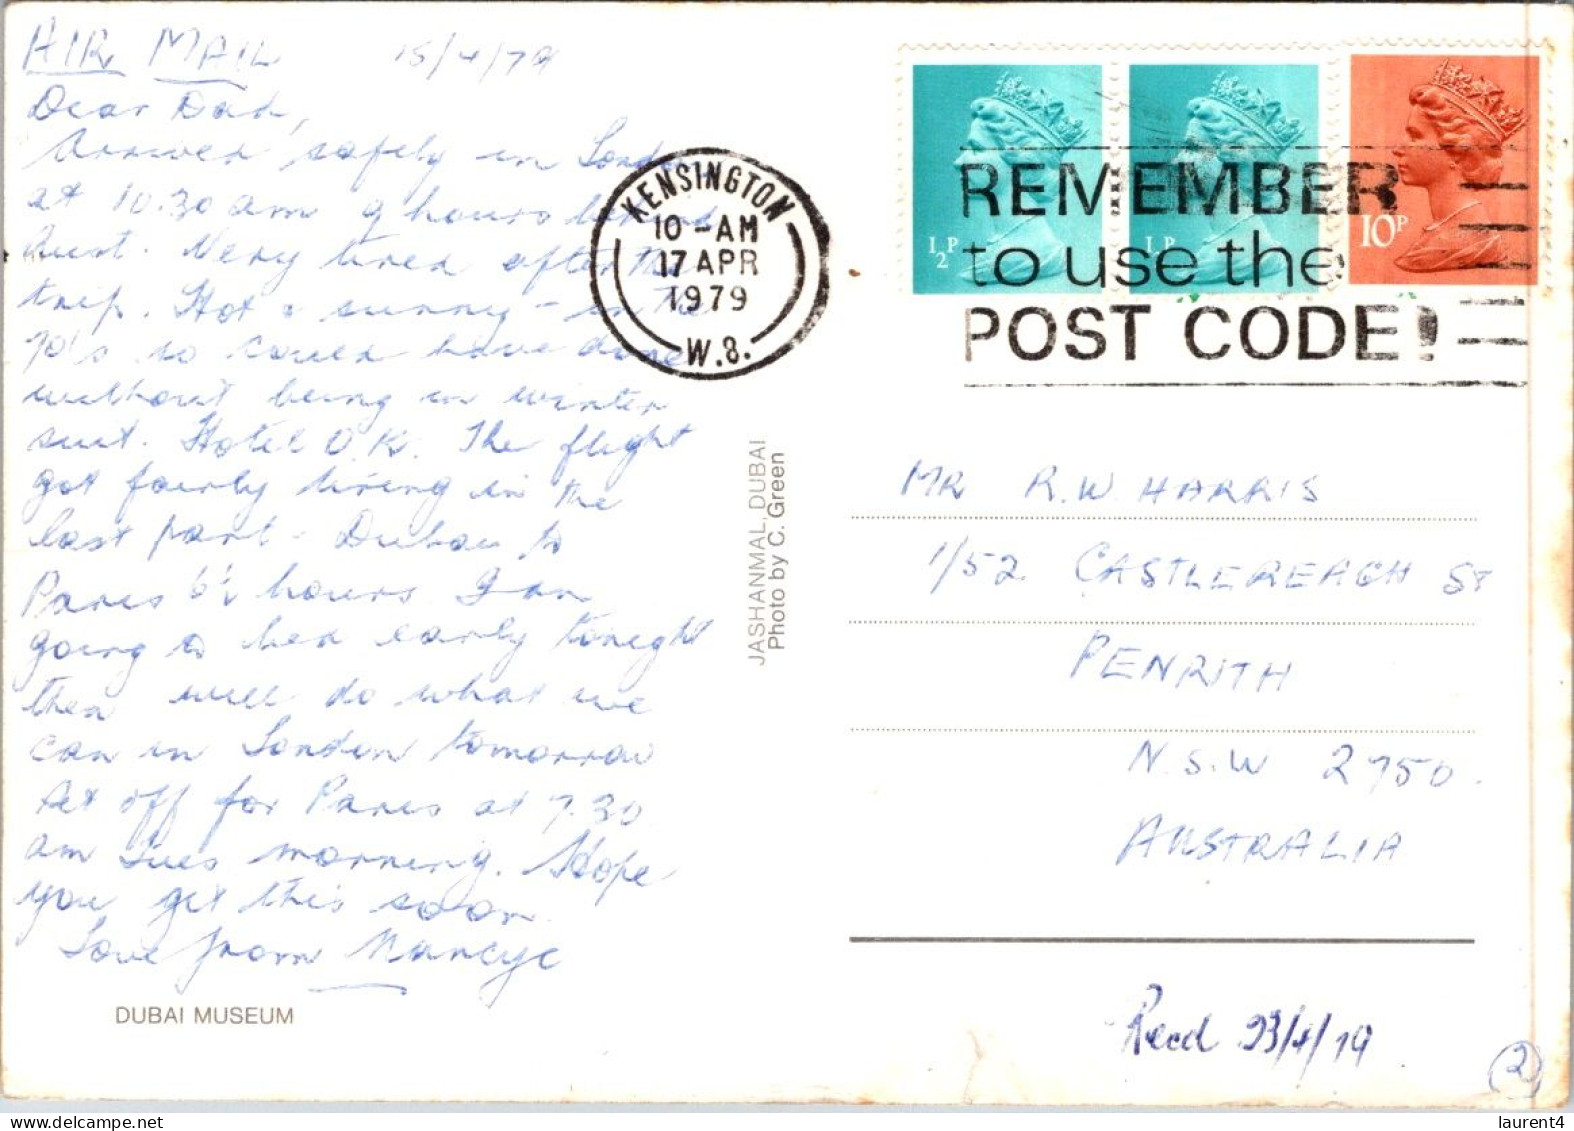 AIR MAIL 15/4/79
Dear Dad,
Arrived safely in London
at 10.30 am 9 hours behind
Aust. Very tired after the
trip. Hot & sunny - in the
70's so could have done
without being in winter
suit. Hotel O.K. The flight
got fairly tiring in the
last part - Dubai to
Paris 6½ hours. I am
going to bed early tonight
then will do what we
can in London tomorrow
Set off for Paris at 7.30
am Tues morning. Hope
you get this soon.
Love from Nancye
DUBAI MUSEUM
JASHANMAL, DUBAI
Photo by C. Green
KENSINGTON
10-AM
17 APR
1979
W.8.
½P
½P
10P
REMEMBER
to use the
POST CODE!
MR R.W. HARRIS
1/52 CASTLEREAGH ST
PENRITH
N.S.W 2750.
AUSTRALIA
Recd 23/4/79
2
laurent4